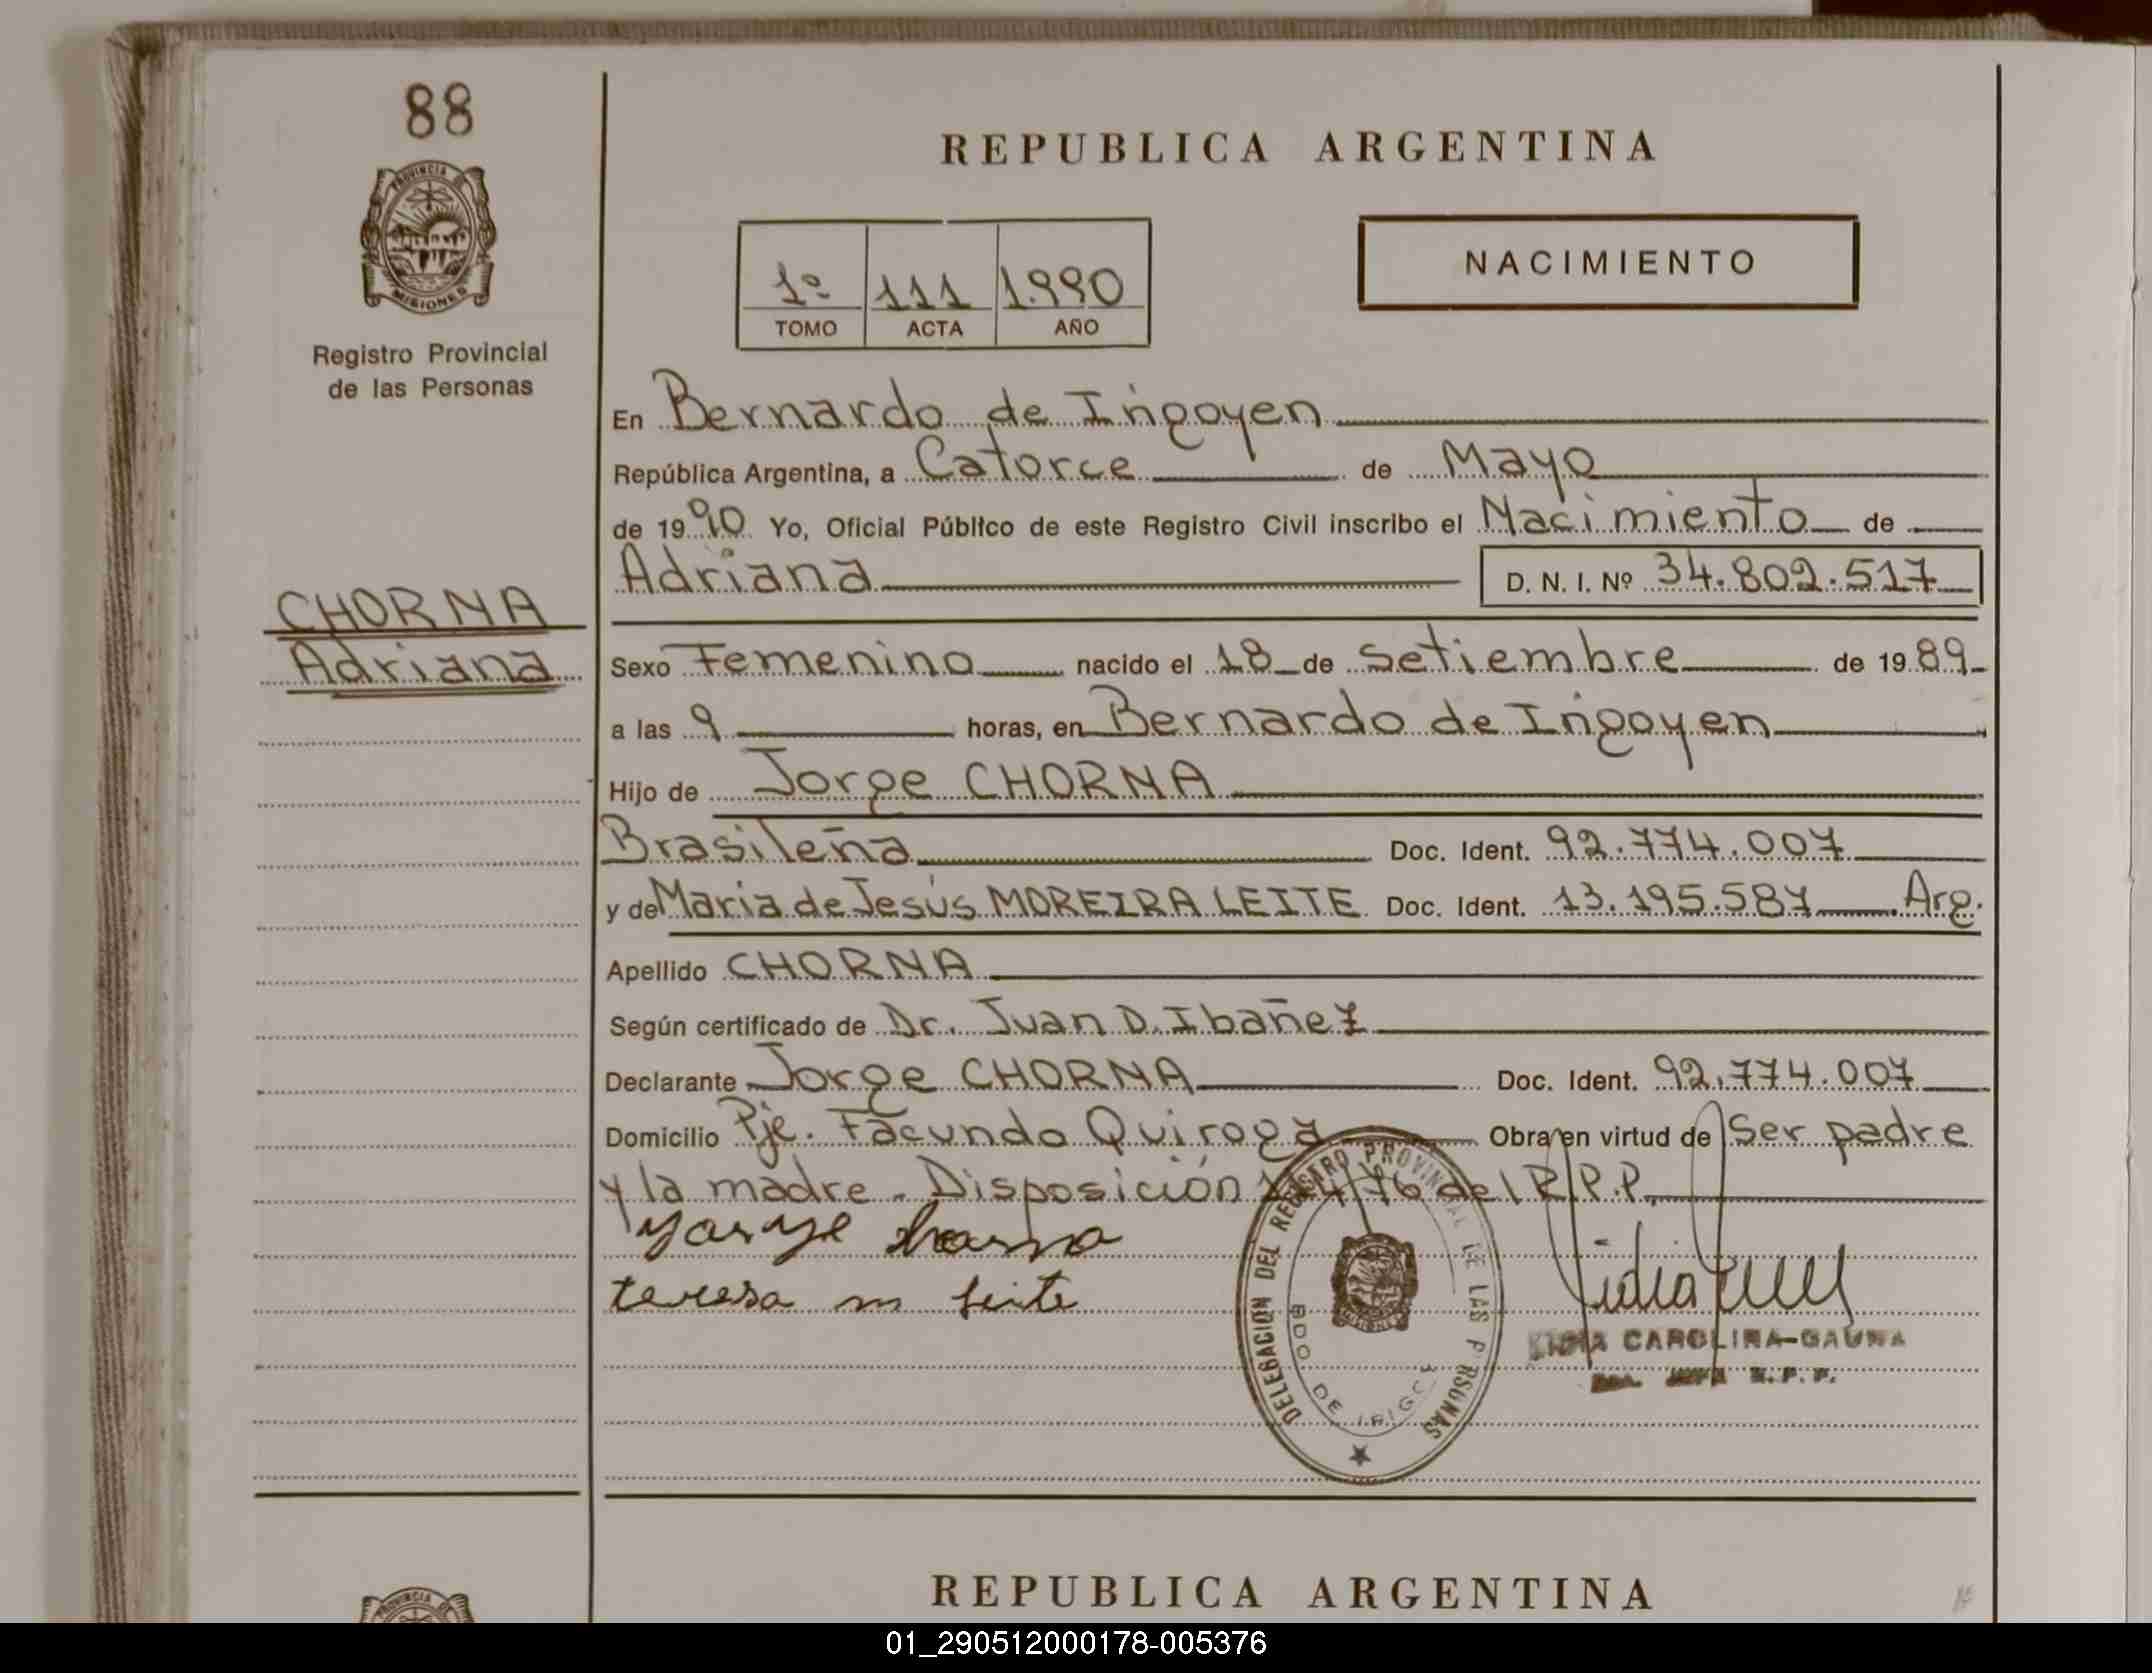 88
PROVINCIA DE
MISIONES
Registro Provincial
de las Personas
CHORNA
Adriana
REPUBLICA ARGENTINA
1º 111 1.990
TOMO ACTA AÑO
NACIMIENTO
En Bernardo de Irigoyen
República Argentina, a Catorce de Mayo
de 1990 Yo, Oficial Público de este Registro Civil inscribo el Nacimiento de
Adriana D. N. I. Nº 34.802.517
Sexo Femenino nacido el 18 de Setiembre de 1989
a las 9 horas, en Bernardo de Irigoyen
Hijo de Jorge CHORNA
Brasileña Doc. Ident. 92.774.007
y de Maria de Jesús MOREIRA LEITE Doc. Ident. 13.195.587 Arg.
Apellido CHORNA
Según certificado de Dr. Juan D. Ibañez
Declarante Jorge CHORNA Doc. Ident. 92.774.007
Domicilio Pje. Facundo Quiroga Obra en virtud de Ser padre
y la madre. Disposición del R.P.P.
teresa m leite
DELEGACION DEL REGISTRO PROVINCIAL DE LAS PERSONAS
BDO. DE IRIGOYEN
LIDIA CAROLINA GAUNA
REPUBLICA ARGENTINA
PROVINCIA DE
01_290512000178-005376